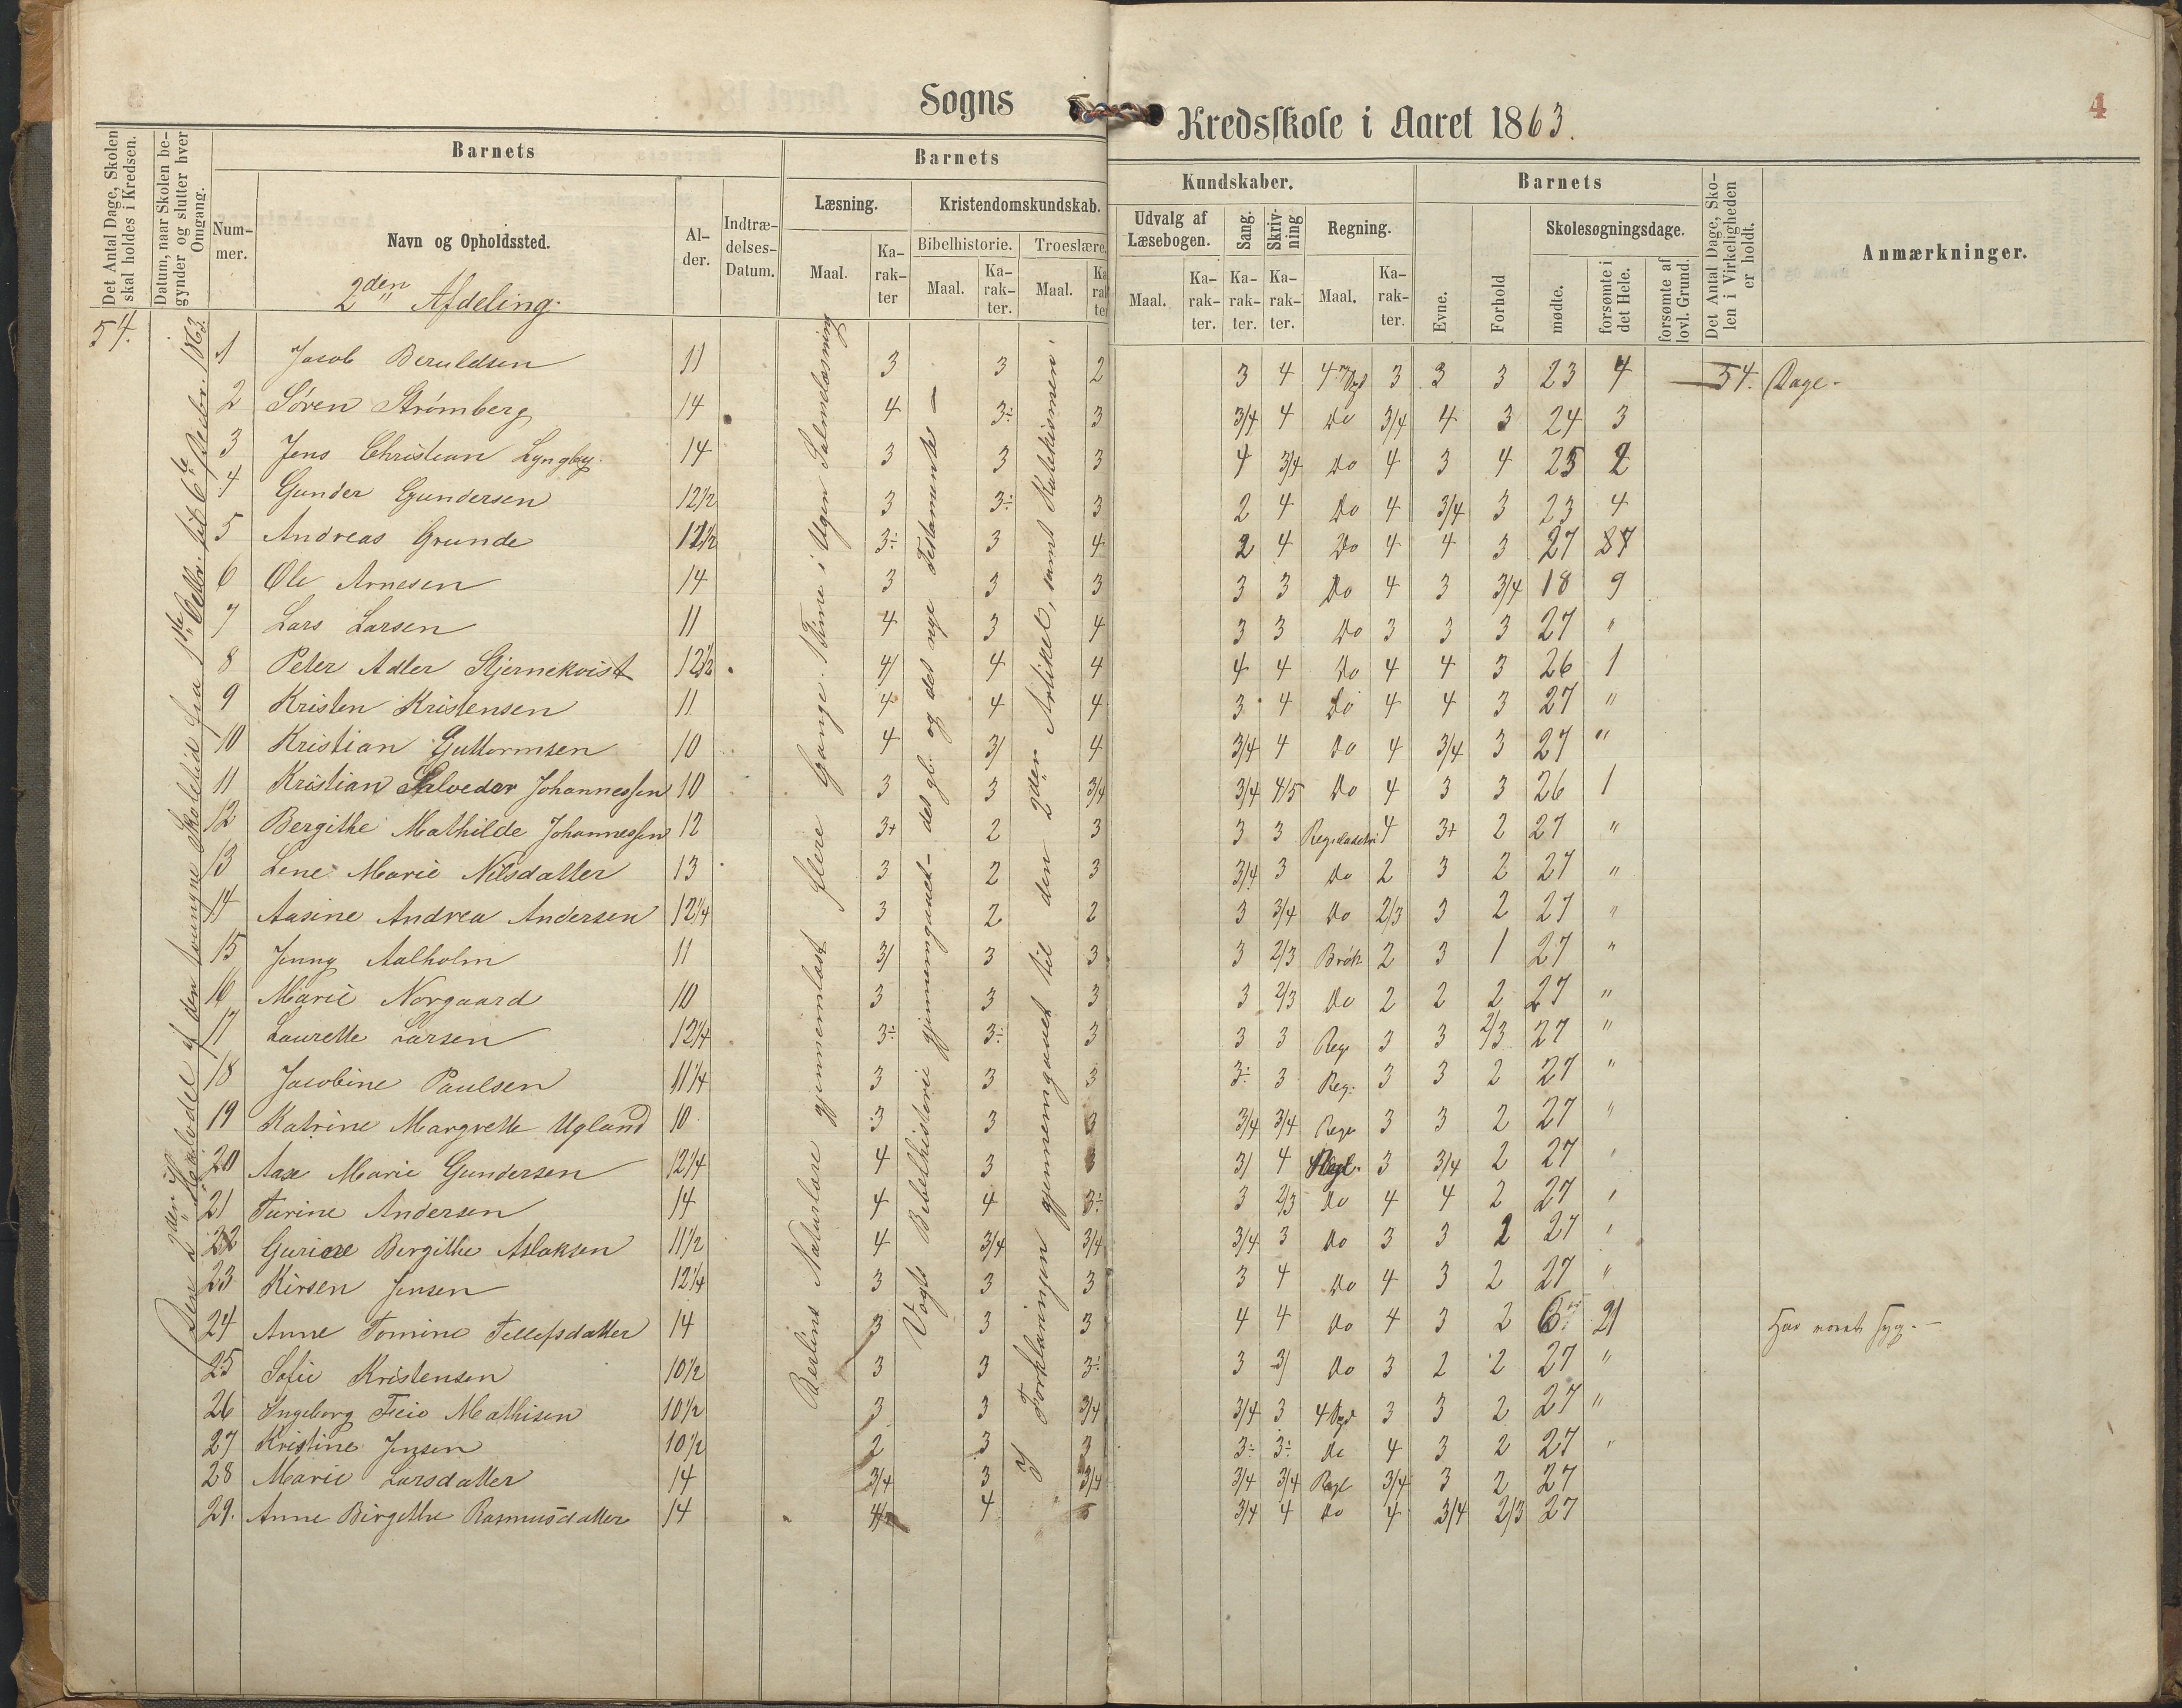 Sogns Kredsskole i Aaret 1863.
4
Det Antal Dage, Skolen skal holdes i Kredsen.
Datum, naar Skolen begynder og slutter hver Omgang.
Barnets
Nummer.
Navn og Opholdssted.
Alder.
Indtrædelses-Datum.
Barnets
Læsning.
Maal.
Karakter
Kristendomskundskab.
Bibelhistorie.
Maal.
Karakter.
Troeslære.
Maal.
Karakter
Kundskaber.
Udvalg af Læsebogen.
Maal.
Karakter.
Sang.
Karakter.
Skrivning
Karakter.
Regning.
Maal.
Karakter.
Barnets
Evne.
Forhold
Skolesøgningsdage.
mødte.
forsømte i det Hele.
forsømte af lovl. Grund.
Det Antal Dage, Skolen i Virkeligheden er holdt.
Anmærkninger.
2den Afdeling.
54.
Den 2den Halvdel af den tvungne Skoletid fra 1ste Octbr. til 6te Decbr. 1863.
Berlins Naturlære gjennemlæst flere Gange. 1 Time i Ugen Salmelæsning
Vogts Bibelhistorie gjennemgaaet - det gl. og det nye Testamente —
I Forklaringen gjennemgaaet til den 2den Artikel, samt Katekismen.
1 Jacob Beruldsen 11 3 3 2 3 4 3 3 3 23 4 54. Dage.
2 Søren Strømberg 14 4 3÷ 3 3/4 4 Do 3/4 4 3 24 3
3 Jens Christian Lyngby. 14 3 3 3 4 3/4 Do 4 3 4 25 2
4 Gunder Gundersen 12 1/2 3 3÷ 3 2 4 Do 4 3/4 3 23 4
5 Andreas Grunde 12 1/2 3÷ 3 4 2 4 Do 4 4 3 27
6 Ole Arnesen 14 3 3 3 3 3 Do 4 3 3/4 18 9
7 Lars Larsen 11 4 3 4 3 3 Do 3 3 3 27 "
8 Peter Adler Stjernekvist 12 1/2 4/ 4 4 4 4 Do 4 4 3 26 1
9 Kristen Kristensen 11 4 4 4 3 4 Do 4 4 3 27 "
10 Kristian Guttormsen 10 4 3/ 4 3/4 4 Do 4 3/4 3 27 "
11 Kristian Salveder Johannessen 10 3 3 3/4 3/4 4/5 Do 4 3 3 26 1
12 Bergithe Mathilde Johannessen 12 3+ 2 3 3 3 4 3+ 2 27 "
13 Lene Marie Nilsdatter 13 3 2 3 3/4 3 Do 2 3 2 27 "
14 Aasine Andrea Andersen 12 1/4 3 2 2 3 3/4 Do 2/3 3 2 27 "
15 Jenny Aalholm 11 3/ 3 3 3 2/3 Brøk 2 3 1 27 "
16 Marie Norgaard 10 3 3 3 3 2/3 Do 2 2 2 27 "
17 Laurette Larsen 12 1/4 3÷ 3÷ 3 3 3 Reg. 3 3 2/3 27 "
18 Jacobine Paulsen 11 1/4 3 3 3 3÷ 3 Reg. 3 3 2 27 "
19 Katrine Margrethe Ugland 10 3 3 3 3/4 3/4 Reg. 3 3 2 27 "
20 Aase Marie Gundersen 12 1/4 4 3 3 3/ 4 Regl. 3 3/4 2 27 "
21 Turine Andersen 14 4 4 3÷ 3 2/3 Do 4 4 2 27 "
22 Guriae Birgithe Aslaksen 11 1/2 4 3/4 3/4 3/4 3 Do 3 3 2 27 "
23 Kirsen Jensen 12 1/4 3 3 3 3 4 Do 4 3 2 27 "
24 Anne Tomine Tellefsdatter 14 3 3 3 4 4 Do 4 3 2 6 21 Har været syg. —
25 Sofie Kristensen 10 1/2 3 3 3÷ 3 3/ Do 3 2 2 27 "
26 Ingeborg Feio Mathisen 10 1/2 3 3 3/4 3/4 3 3 3 2 27 "
27 Kristine Jensen 10 1/2 2 3 3 3÷ 3÷ Do 4 3 2 27 "
28 Marie Larsdatter 14 3/4 3 3/4 3/4 3/4 Regl 3/4 3 2 27
29. Anne Birgithe Rasmusdatter 14 4 5 3/4 4 Do 4 3/4 2/3 27